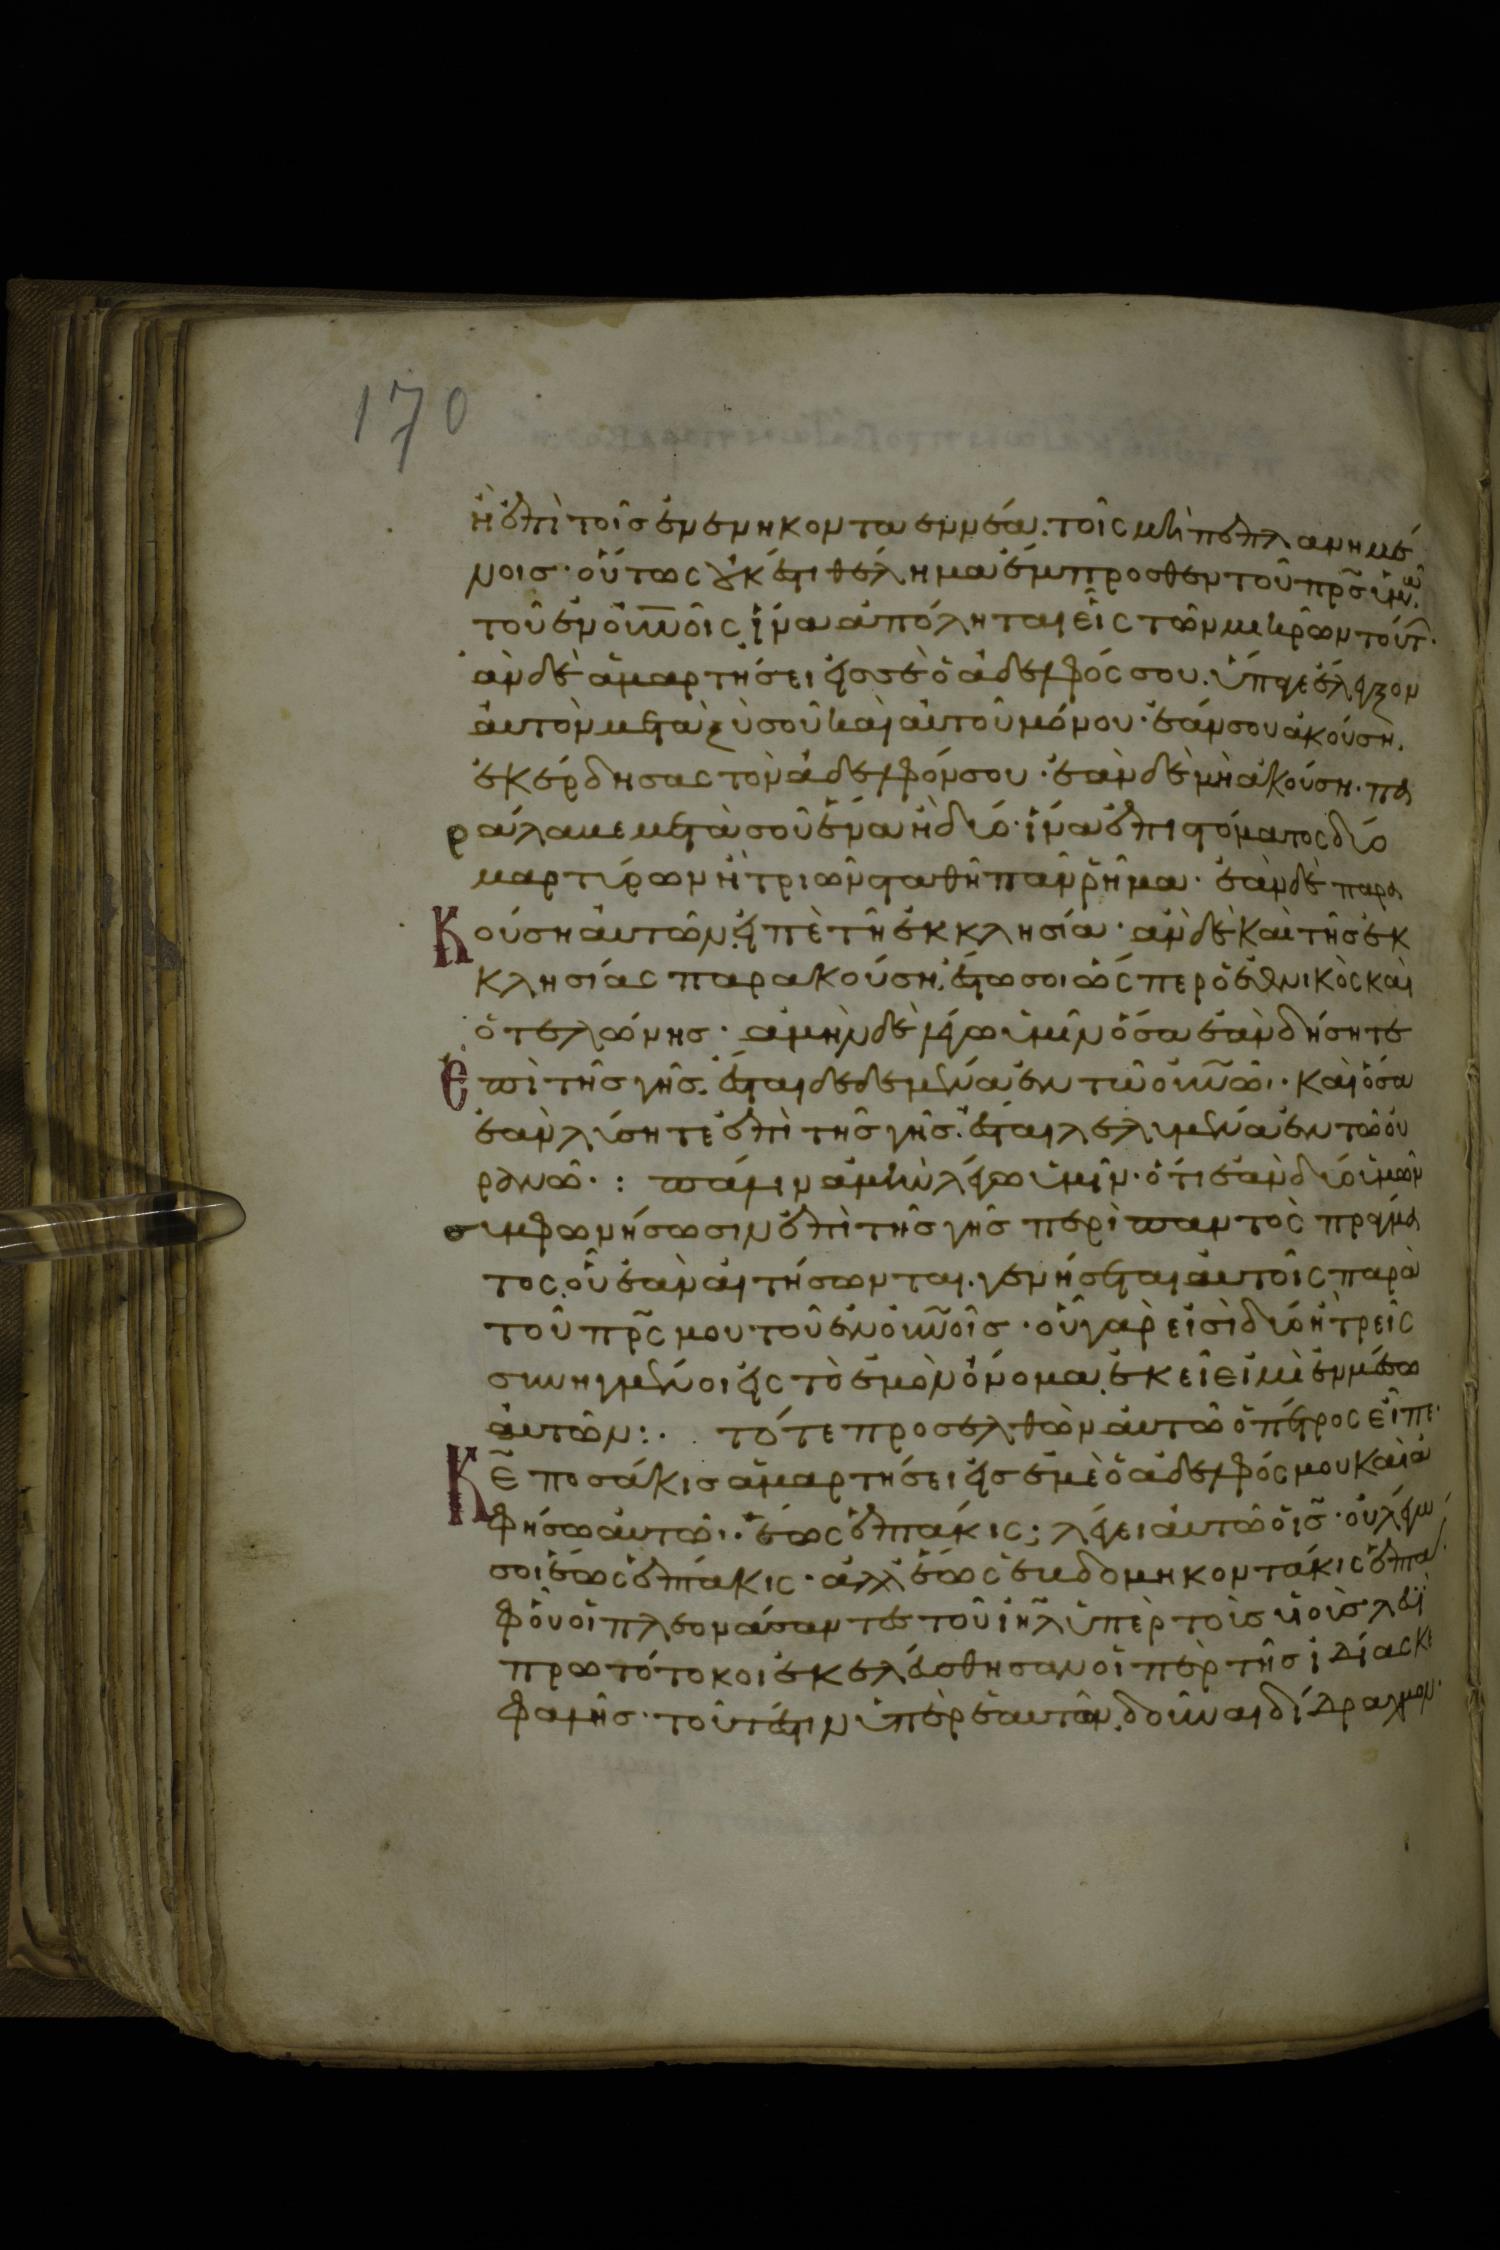 170
ἢ ἐπὶ τοῖσ ἐνενηκονταεννέα. τοῖς μὴ πεπλανημέ
νοισ· οὕτως οὐκ ἔστι θέλημα ἔμπροσθεν τοῦ πρ̅ς ὑμῶν.
τοῦ ἐν οὐνοῖς ἵνα ἀπόληται εἷς τῶν μικρῶν τούτ·
ἀν δὲ ἁμαρτήσει εἰσ σὲ ὁ ἀδελφός σου. ὕπαγε ἔλεγξον
ἀυτὸν μεταξὺ σοῦ καὶ αυτοῦ μόνου· ἐάν σου ἀκούση.
ἐκέρδησας τὸν ἀδελφόν σου· ἐὰν δὲ μὴ ἀκούση· πα
ράλαβε μετὰ σοῦ ἕνα ἢ δύο· ἵνα ἐπι στόματος δύο
μαρτύρων ἢ τριῶν σταθῆ πᾶν ῥῆμα· ἐὰν δὲ παρα
Κούση ἀυτῶν. εἰπὲ τῆ ἐκκλησία· ἀν δὲ Καὶ τῆσ ἐκ
κλησίας παρακούση. ἔστω σοι ὥς περ ὁ ἐθνικὸς καὶ
ὁ τελώνησ· ἀμὴν δὲ λέγω ὑμῖν ὅσα ἐὰν δήσητε
Ἐπὶ τῆσ γῆσ. ἔσται δεδεμένα ἐν τῶ οὐνῶ· καὶ ὅσα
ἐὰν λύσητε ἐπὶ τῆσ γῆσ. ἔσται λελυμένα ἐν τῶ οὐ
ρανῶ· : πάλιν ἀμὴν λέγω ὑμῖν· ὅτι ἐὰν δύο ὑμῶν
συμφωνήσωσιν ἐπὶ τῆσ γῆσ περὶ παντὸς πράγμα
τος. οὗ ἐὰν αἰτήσωνται. γενήσεται ἀυτοῖς παρὰ
τοῦ πρ̅ς μου τοῦ ἐν οὐνοῖσ· οὗ γὰρ εἰσὶ δύο ἢ τρεῖς
συνηγμένοι εἰς τὸ ἐμὸν ὄνομα. ἐκεῖ εἰμὶ ἐν μέσω
ἀυτῶν:· τότε προσελθὼν ἀυτῶ ὁ πέτρος εἶπε·
Κε̅ ποσάκισ ἁμαρτήσει εἰσ ἐμὲ ὁ ἀδελφός μου καὶ ἀ
φήσω ἀυτῶ· ἕως ἑπτάκις; λέγει ἀυτῶ ὁ ισ̅· οὐ λέγω
σοι ἕως ἑπτάκις· ἀλλ ἕως ἑβδομηκοντάκις ἑπτά·
φόνοι πλεονάσαντεσ τοῦ ιη̅λ ὑπὲρ τοὺσ υἱοὺσ λευὶ
πρωτότοκοι ἐκελεύσθησαν οἱ περ τῆσ ἰδίας κε
φαλῆσ· τοῦτέστιν ὑπὲρ ἑαυτῶν. δοῦναι δίδραχμον·